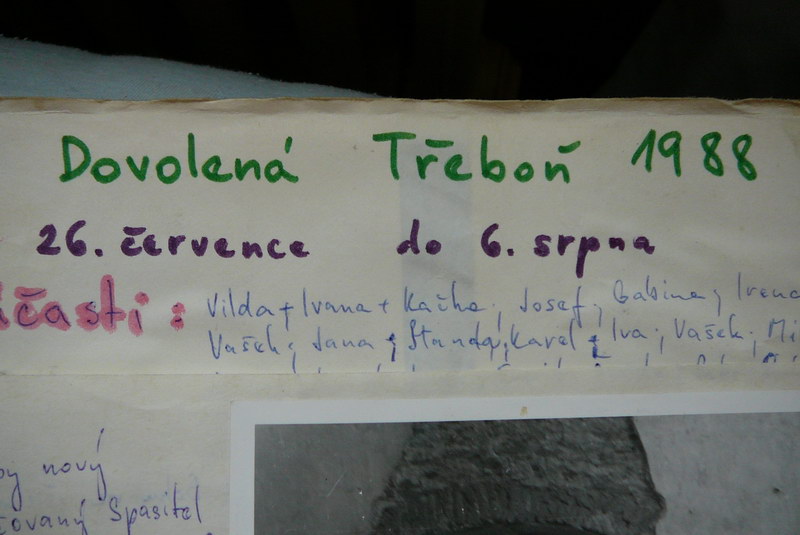 Dovolená Třeboň 1988
26. července do 6. srpna
účasti: Vilda + Ivana + Kačka, Josef, Gabina, Irena
Vašek, Jana, Standa, Karel + Iva, Vašek, Mi
nový
Spasitel